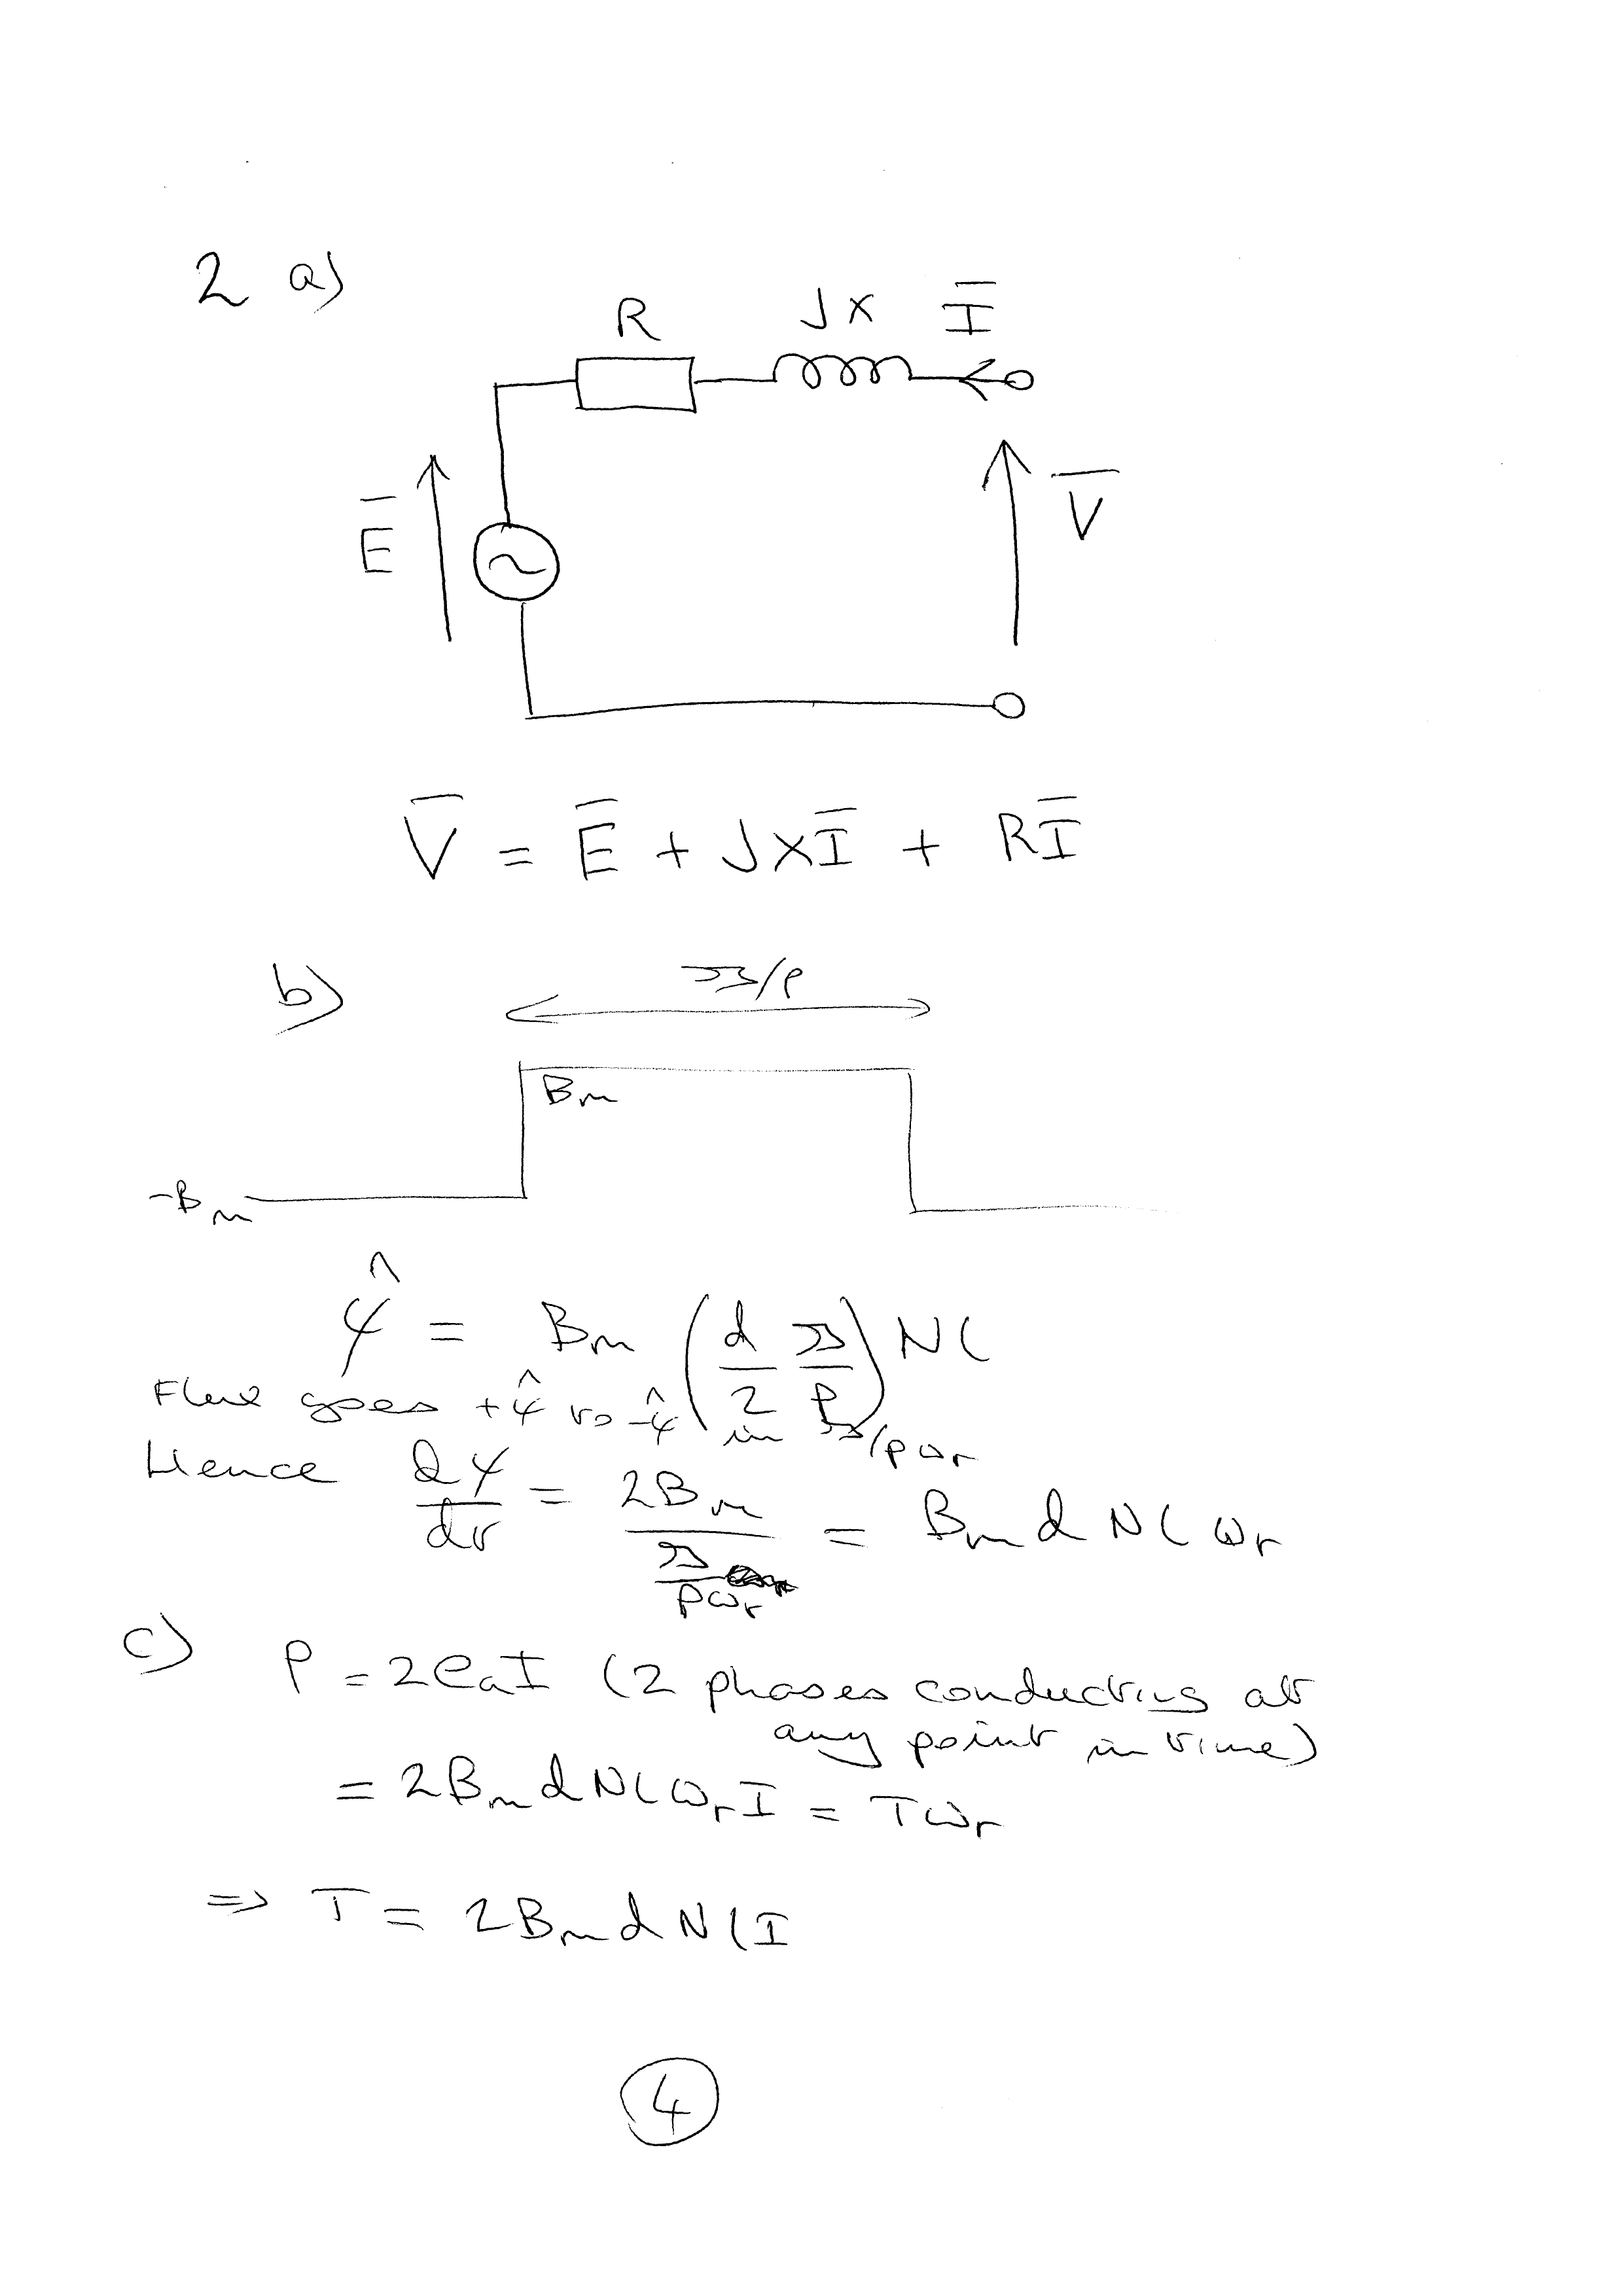 2 a)
R JX I̅
E̅ V̅
V̅ = E̅ + JXI̅ + RI̅
b) π/p
Bm
-Bm
ψ̂ = Bm (d/2 π/p) N l
Flux goes +ψ̂ to -ψ̂ in π/pωr
Hence dψ/dt = 2Bm / (π/pωr) = Bm d N l ωr
c) P = 2eaI (2 phases conducting at
any point in time)
= 2Bm d N l ωr I = Tωr
⇒ T = 2Bm d N l I
4